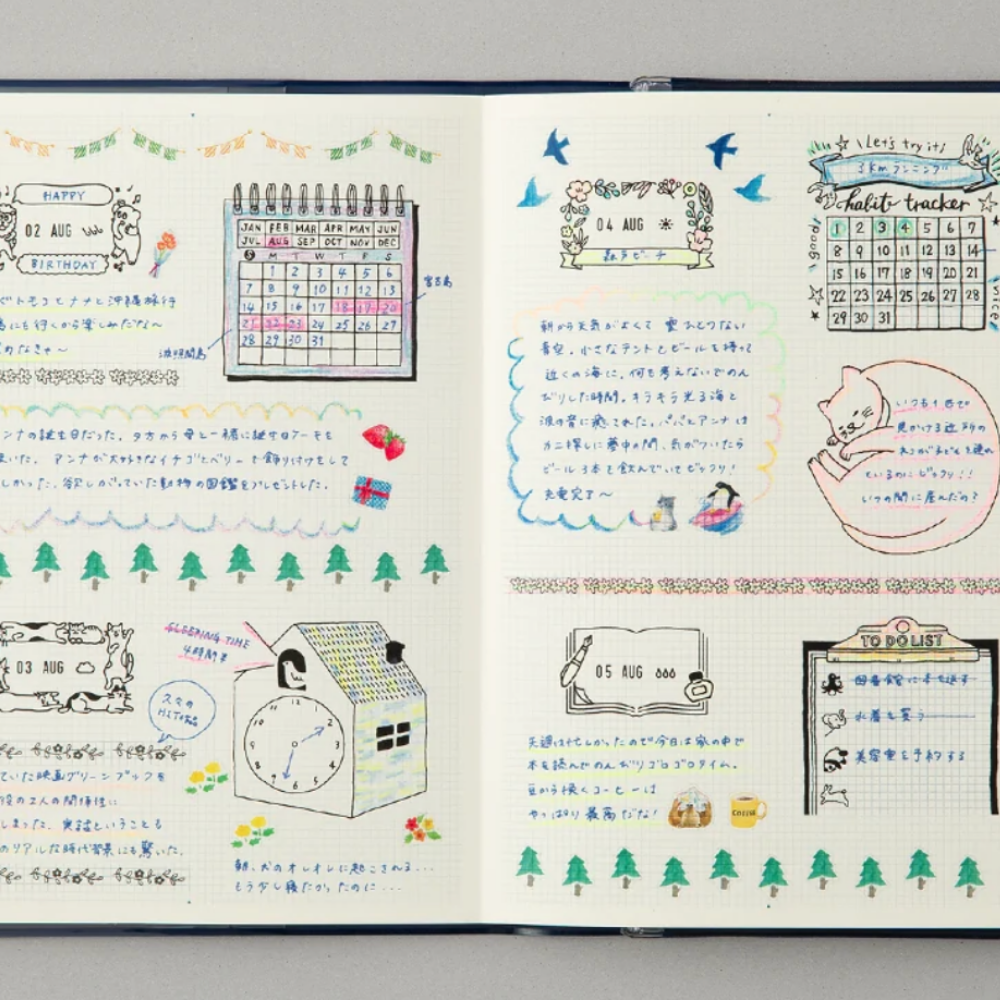 HAPPY
02 AUG
BIRTHDAY
トモコとナナと沖縄旅行
にも行くから楽しみだな〜
のなきゃ〜
JAN FEB MAR APR MAY JUN
JUL AUG SEP OCT NOV DEC
S M T W T F S
1 2 3 4 5 6
7 8 9 10 11 12 13
14 15 16 17 18 19 20
21 22 23 24 25 26 27
28 29 30 31
宮古島
波照間島
ンナの誕生日だった。夕方から母と一緒に誕生日ケーキを
いた。アンナが大好きなイチゴとベリーで飾り付けをして
しかった。欲しがっていた動物の図鑑をプレゼントした。
03 AUG
久々の
HIT作品
ていた映画グリーンブックを
役の2人の関係性に
しまった。実話ということも
のリアルな時代背景にも驚いた。
SLEEPING TIME
4時間半
12 1 2 3 4 5 6 7 8 9 10 11
朝、犬のオレオレに起こされる...
もう少し寝たかったのに...
04 AUG
森戸ビーチ
朝から天気がよくて 雲ひとつない
青空。小さなテントとビールを持って
近くの海に。何も考えないでのん
びりした時間。キラキラ光る海と
波の音に癒された。パパとアンナは
カニ探しに夢中の間、気がついたら
ビール3本を飲んでいてビックリ!
充電完了〜
Let's try it!
3km ランニング
habit tracker
good
nice
1 2 3 4 5 6 7
8 9 10 11 12 13 14
15 16 17 18 19 20 21
22 23 24 25 26 27 28
29 30 31
いつも1匹で
見かける近所の
ネコが子どもを連れ
ているのにビックリ!!
いつの間に産んだの?
05 AUG
先週は忙しかったので今日は家の中で
本を読んでのんびりゴロゴロタイム。
豆から挽くコーヒーは
やっぱり最高だな!
COFFEE
TO DO LIST
図書館に本を返す
水着を買う
美容室を予約する